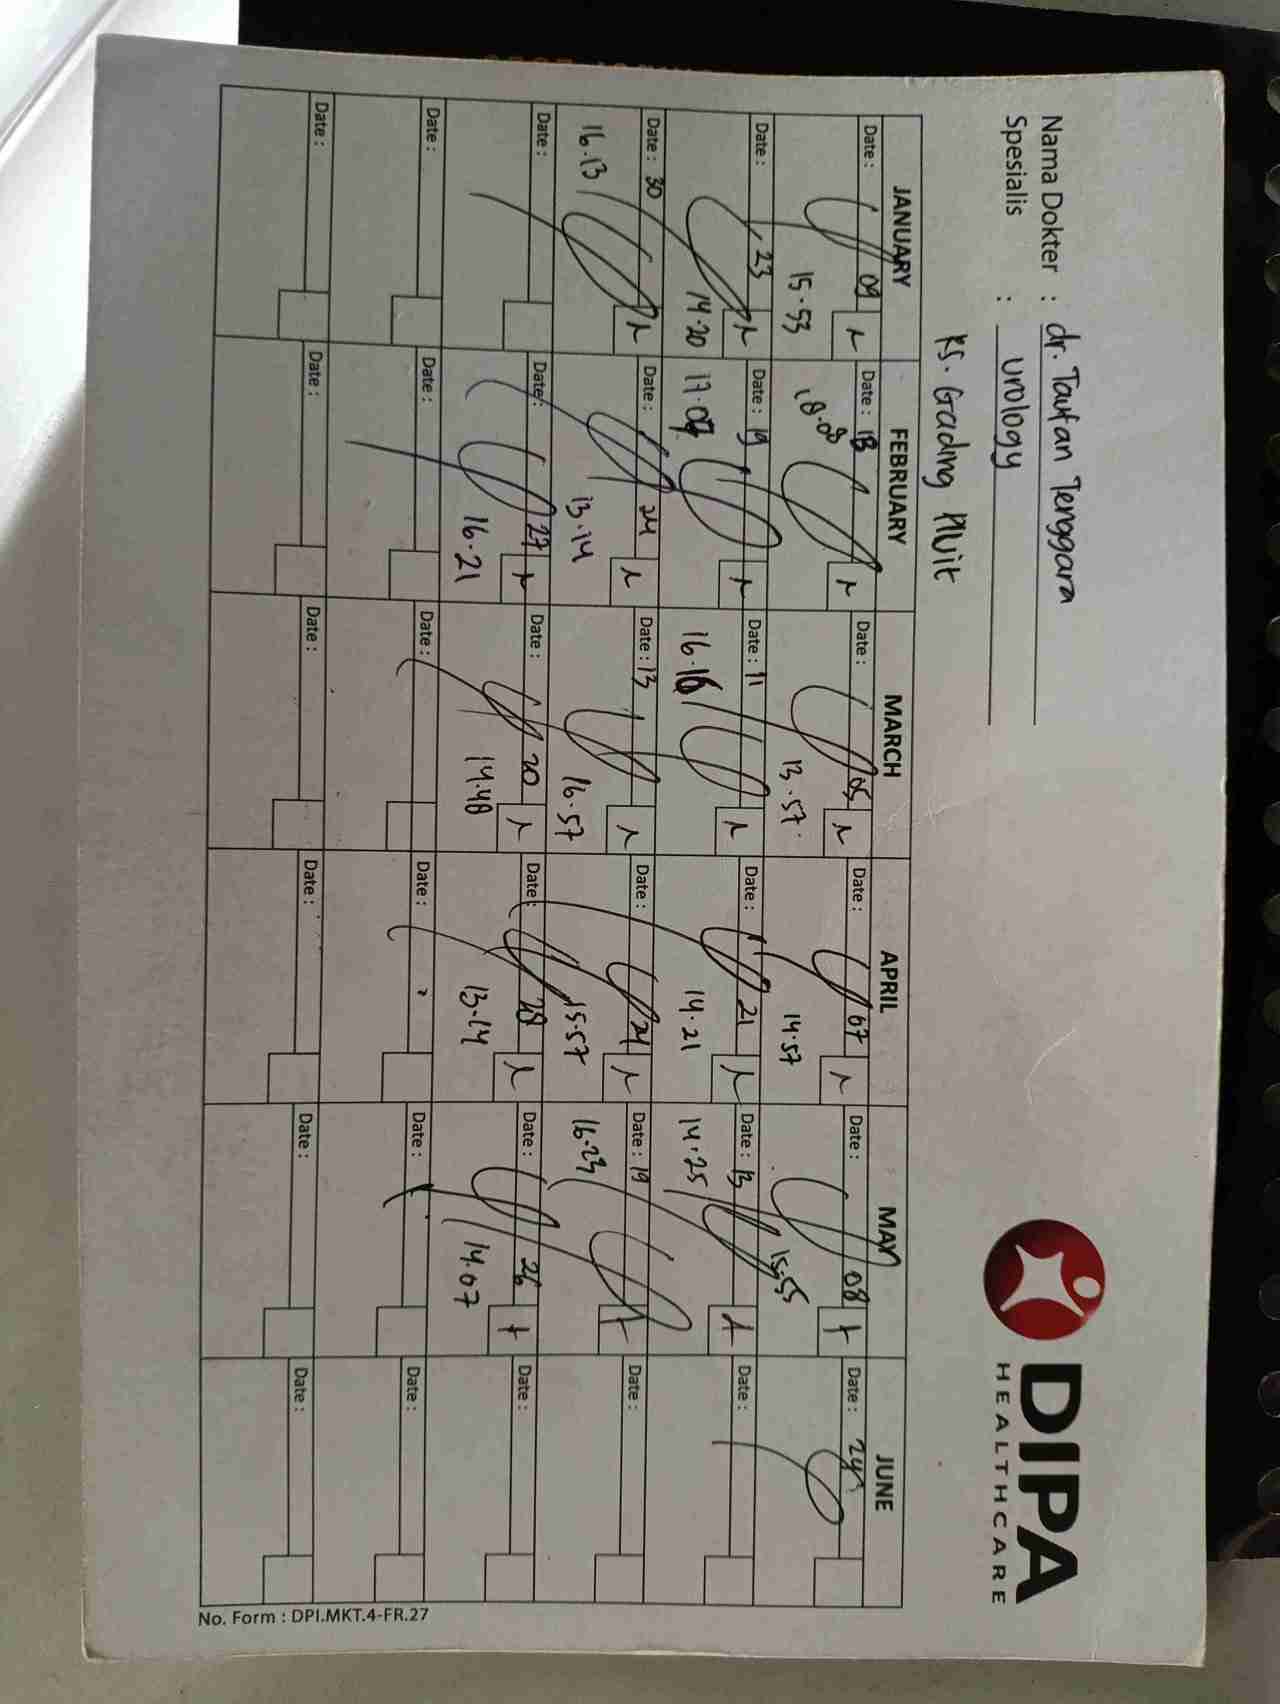 Nama Dokter : dr. Taufan Tenggara
Spesialis : urology
RS. Gading Pluit
DIPA
HEALTHCARE
JANUARY FEBRUARY MARCH APRIL MAY JUNE
Date : 09 Date : 18 Date : 05 Date : 07 Date : 08 Date : 24
15.53 18.08 13.57 14.57 15.55
Date : 23 Date : 19 Date : 11 Date : 21 Date : 13 Date :
14.20 17.07 16.16 14.21 14.25
Date : 30 Date : 24 Date : 13 Date : 24 Date : 19 Date :
16.13 13.14 16.57 15.57 16.23
Date : Date : 27 Date : 20 Date : 28 Date : 26 Date :
16.21 14.48 13.14 14.07
Date : Date : Date : Date : Date : Date :
Date : Date : Date : Date : Date : Date :
No. Form : DPI.MKT.4-FR.27